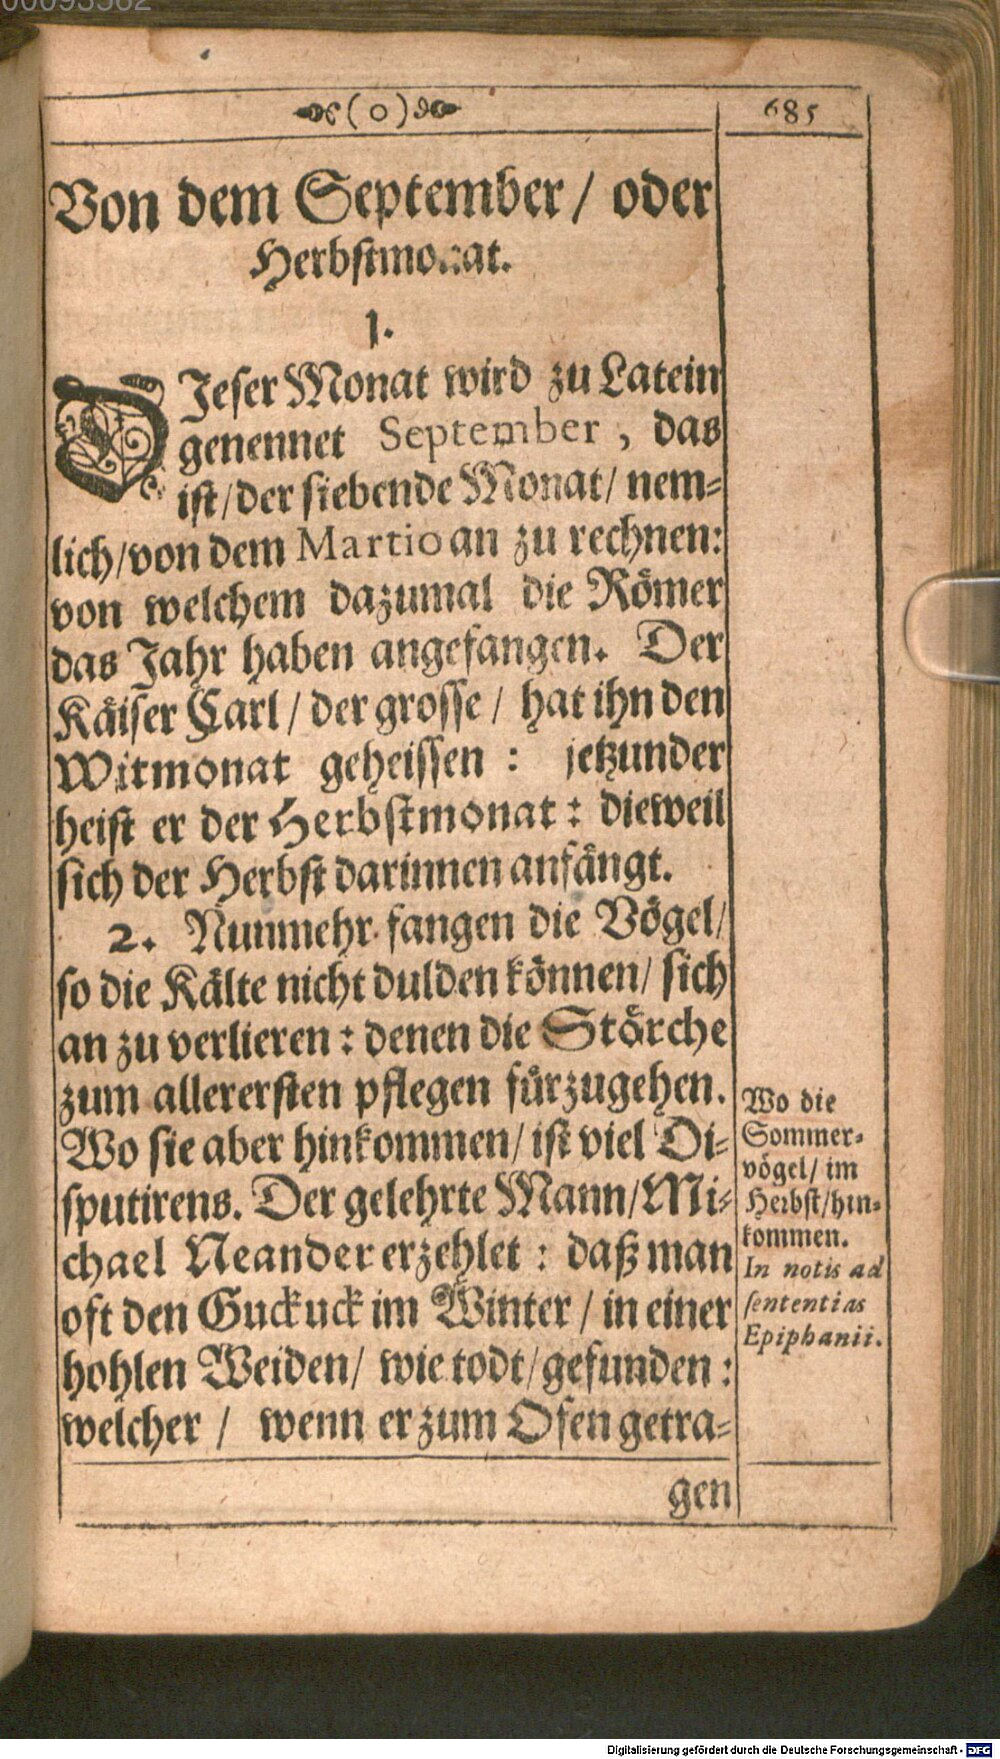 (0)
685
Von dem September / oder
Herbstmonat.
1.
DJeser Monat wird zu Latein
genennet September, das
ist / der siebende Monat / nem-
lich / von dem Martio an zu rechnen:
von welchem dazumal die Römer
das Jahr haben angefangen. Der
Käiser Carl / der grosse / hat ihn den
Witmonat geheissen: jetzunder
heist er der Herbstmonat: dieweil
sich der Herbst darinnen anfängt.
2. Nunmehr fangen die Vögel /
so die Kälte nicht dulden können / sich
an zu verlieren: denen die Störche
zum allerersten pflegen fürzugehen.
Wo sie aber hinkommen / ist viel Di-
sputirens. Der gelehrte Mann / Mi-
chael Neander erzehlet: daß man
oft den Guckuck im Winter / in einer
hohlen Weiden / wie todt / gefunden:
welcher / wenn er zum Ofen getra-
gen
Wo die
Sommer-
vögel / im
Herbst / hin-
kommen.
In notis ad
sententias
Epiphanii.
Digitalisierung gefördert durch die Deutsche Forschungsgemeinschaft - DFG